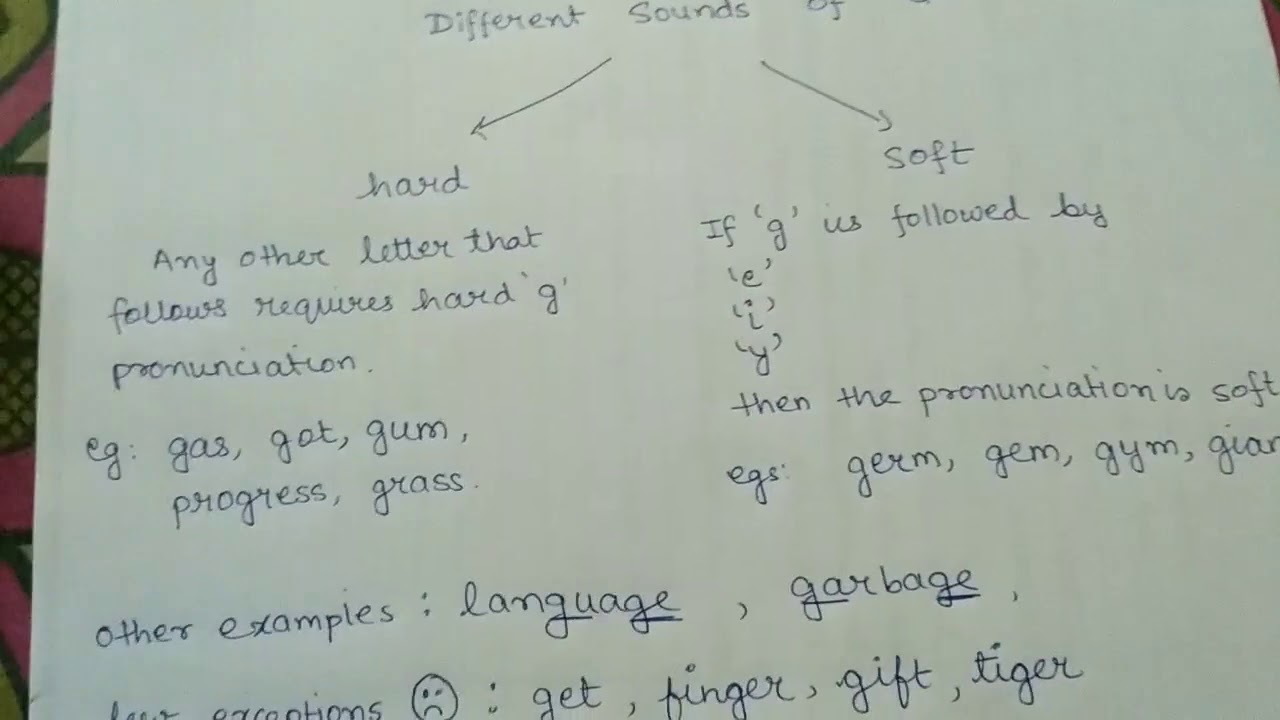 Different Sounds of
hard
Any other letter that
follows requires hard 'g'
pronunciation.
eg: gas, got, gum,
progress, grass.
soft
If 'g' is followed by
'e'
'i'
'y'
then the pronunciation is soft
egs: germ, gem, gym,
other examples : language , garbage ,
exceptions : get , finger, gift, tiger